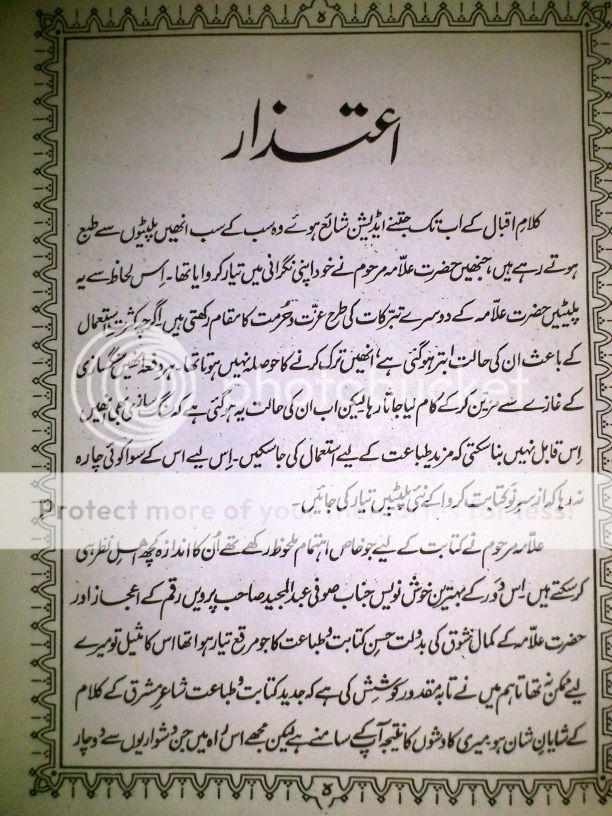 ۵
اعتذار
کلامِ اقبال کے اب تک جتنے ایڈیشن شائع ہوئے وہ سب کے سب انھیں پلیٹوں سے طبع
ہوتے رہے ہیں، جنھیں حضرت علّامہ مرحوم نے خود اپنی نگرانی میں تیار کروایا تھا۔ اِس لحاظ سے یہ
پلیٹیں حضرت علّامہ کے دوسرے تبرکات کی طرح عزّت و حُرمت کا مقام رکھتی ہیں۔ اگرچہ کثرتِ استعمال
کے باعث ان کی حالت ابتر ہو گئی ہے، انھیں ترک کرنے کا حوصلہ نہیں ہوتا تھا۔ ہر دفعہ انھیں سنگسازی
کے غازے سے مزین کر کے کام لیا جاتا رہا لیکن اب ان کی حالت یہ ہو گئی ہے کہ سنگ سازی بھی انھیں
اِس قابل نہیں بنا سکتی کہ مزید طباعت کے لیے استعمال کی جا سکیں۔ اِس لیے اس کے سوا کوئی چارہ
نہ رہا کہ از سرِ نو کتابت کروا کے نئی پلیٹیں تیار کی جائیں۔
علّامہ مرحوم نے کتابت کے لیے جو خاص اہتمام ملحوظ رکھے تھے اُن کا اندازہ کچھ اہلِ نظر ہی
کر سکتے ہیں۔ اِس دَور کے بہترین خوش نویس جناب صوفی عبدالمجید صاحب پرویں رقم کے اعجاز اور
حضرت علّامہ کے کمالِ تشوق کی بدولت حسنِ کتابت و طباعت کا جو مرقع تیار ہوا تھا اس کا مثیل تو میرے
لیے ممکن نہ تھا تاہم میں نے تا بہ مقدور کوشش کی ہے کہ جدید کتابت و طباعت شاعرِ مشرق کے کلام
کے شایانِ شان ہو۔ میری کاوشوں کا نتیجہ آپ کے سامنے ہے لیکن مجھے اس راہ میں جن دشواریوں سے دوچار
۵
photobucket
Protect more of your memories for less!